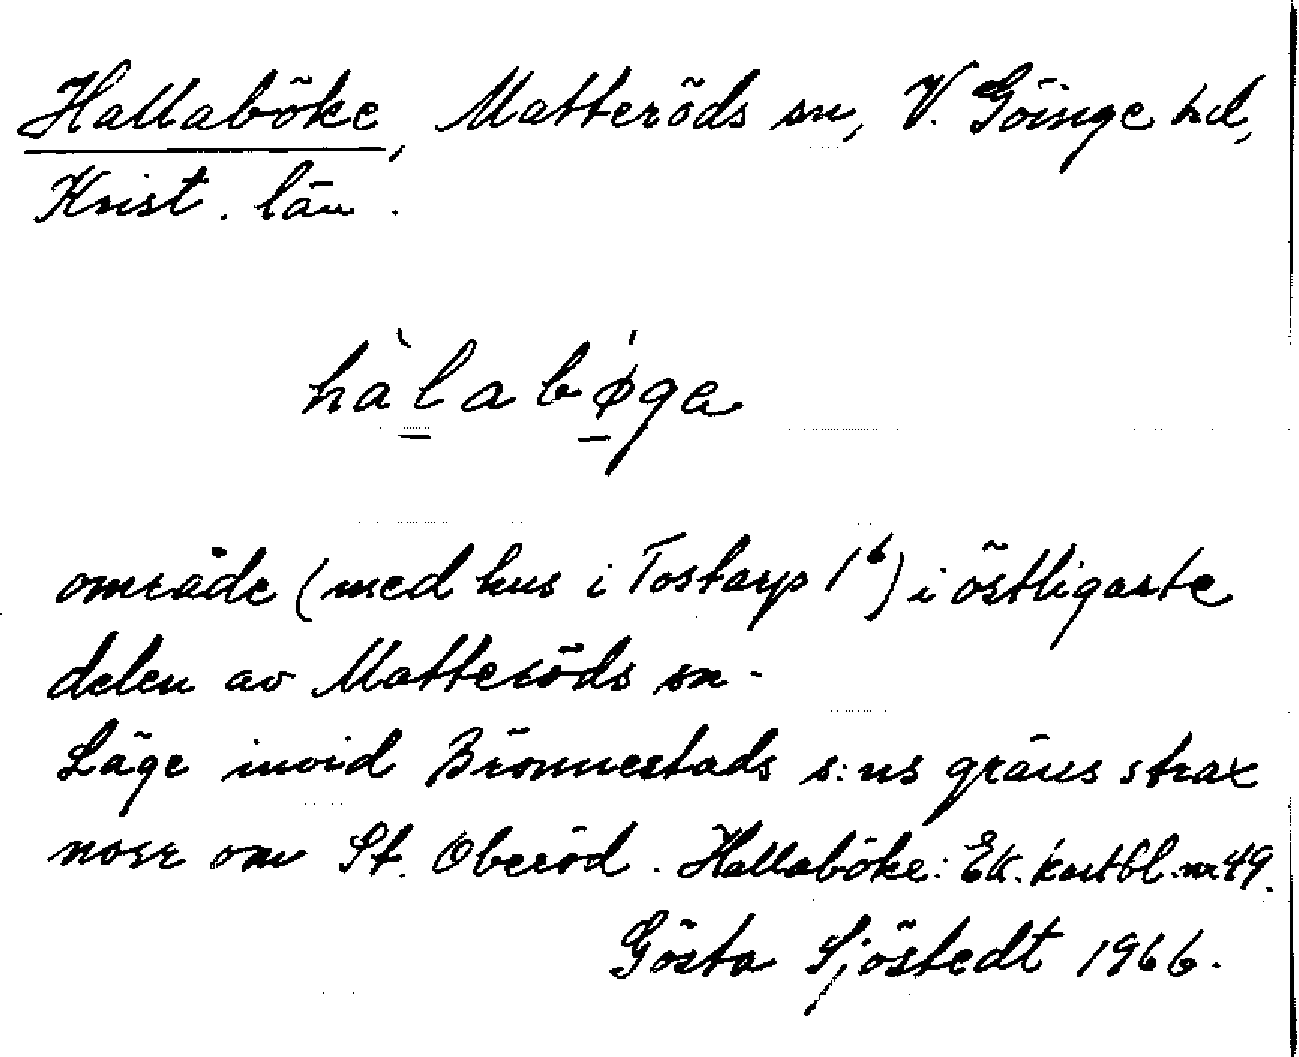 Hallaböke, Matteröds sn, V. Göinge hd,
Krist. län.
hàlabǿga
område (med hus i Tostarp 1⁶) i östligaste
delen av Matteröds sn.
Läge invid Brönnestads s:ns gräns strax
norr om St. Oberöd. Hallaböke: Ek. kartbl. nr 49.
Gösta Sjöstedt 1966.